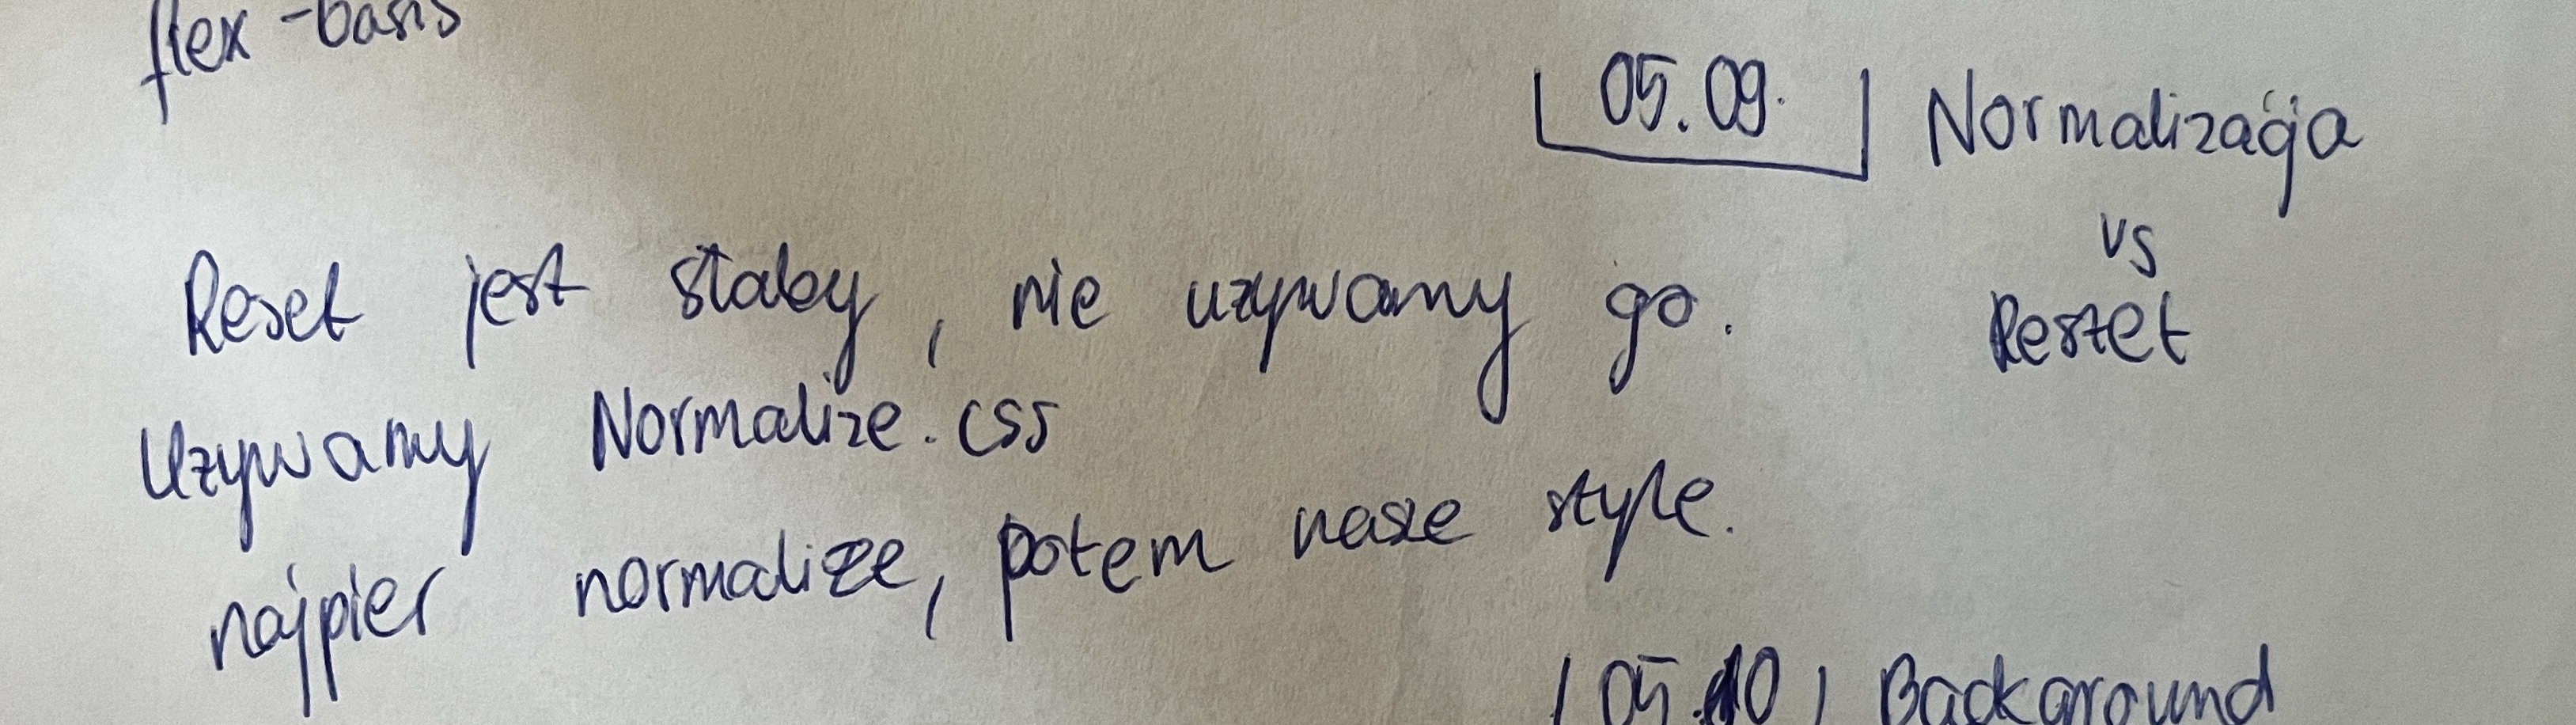 flex-basis
05.09. Normalizacja
vs
Reszet
Reset jest słaby, nie uzywamy go.
Uzywamy Normalize.css
najpier normalize, potem nasze style.
05.10 Background